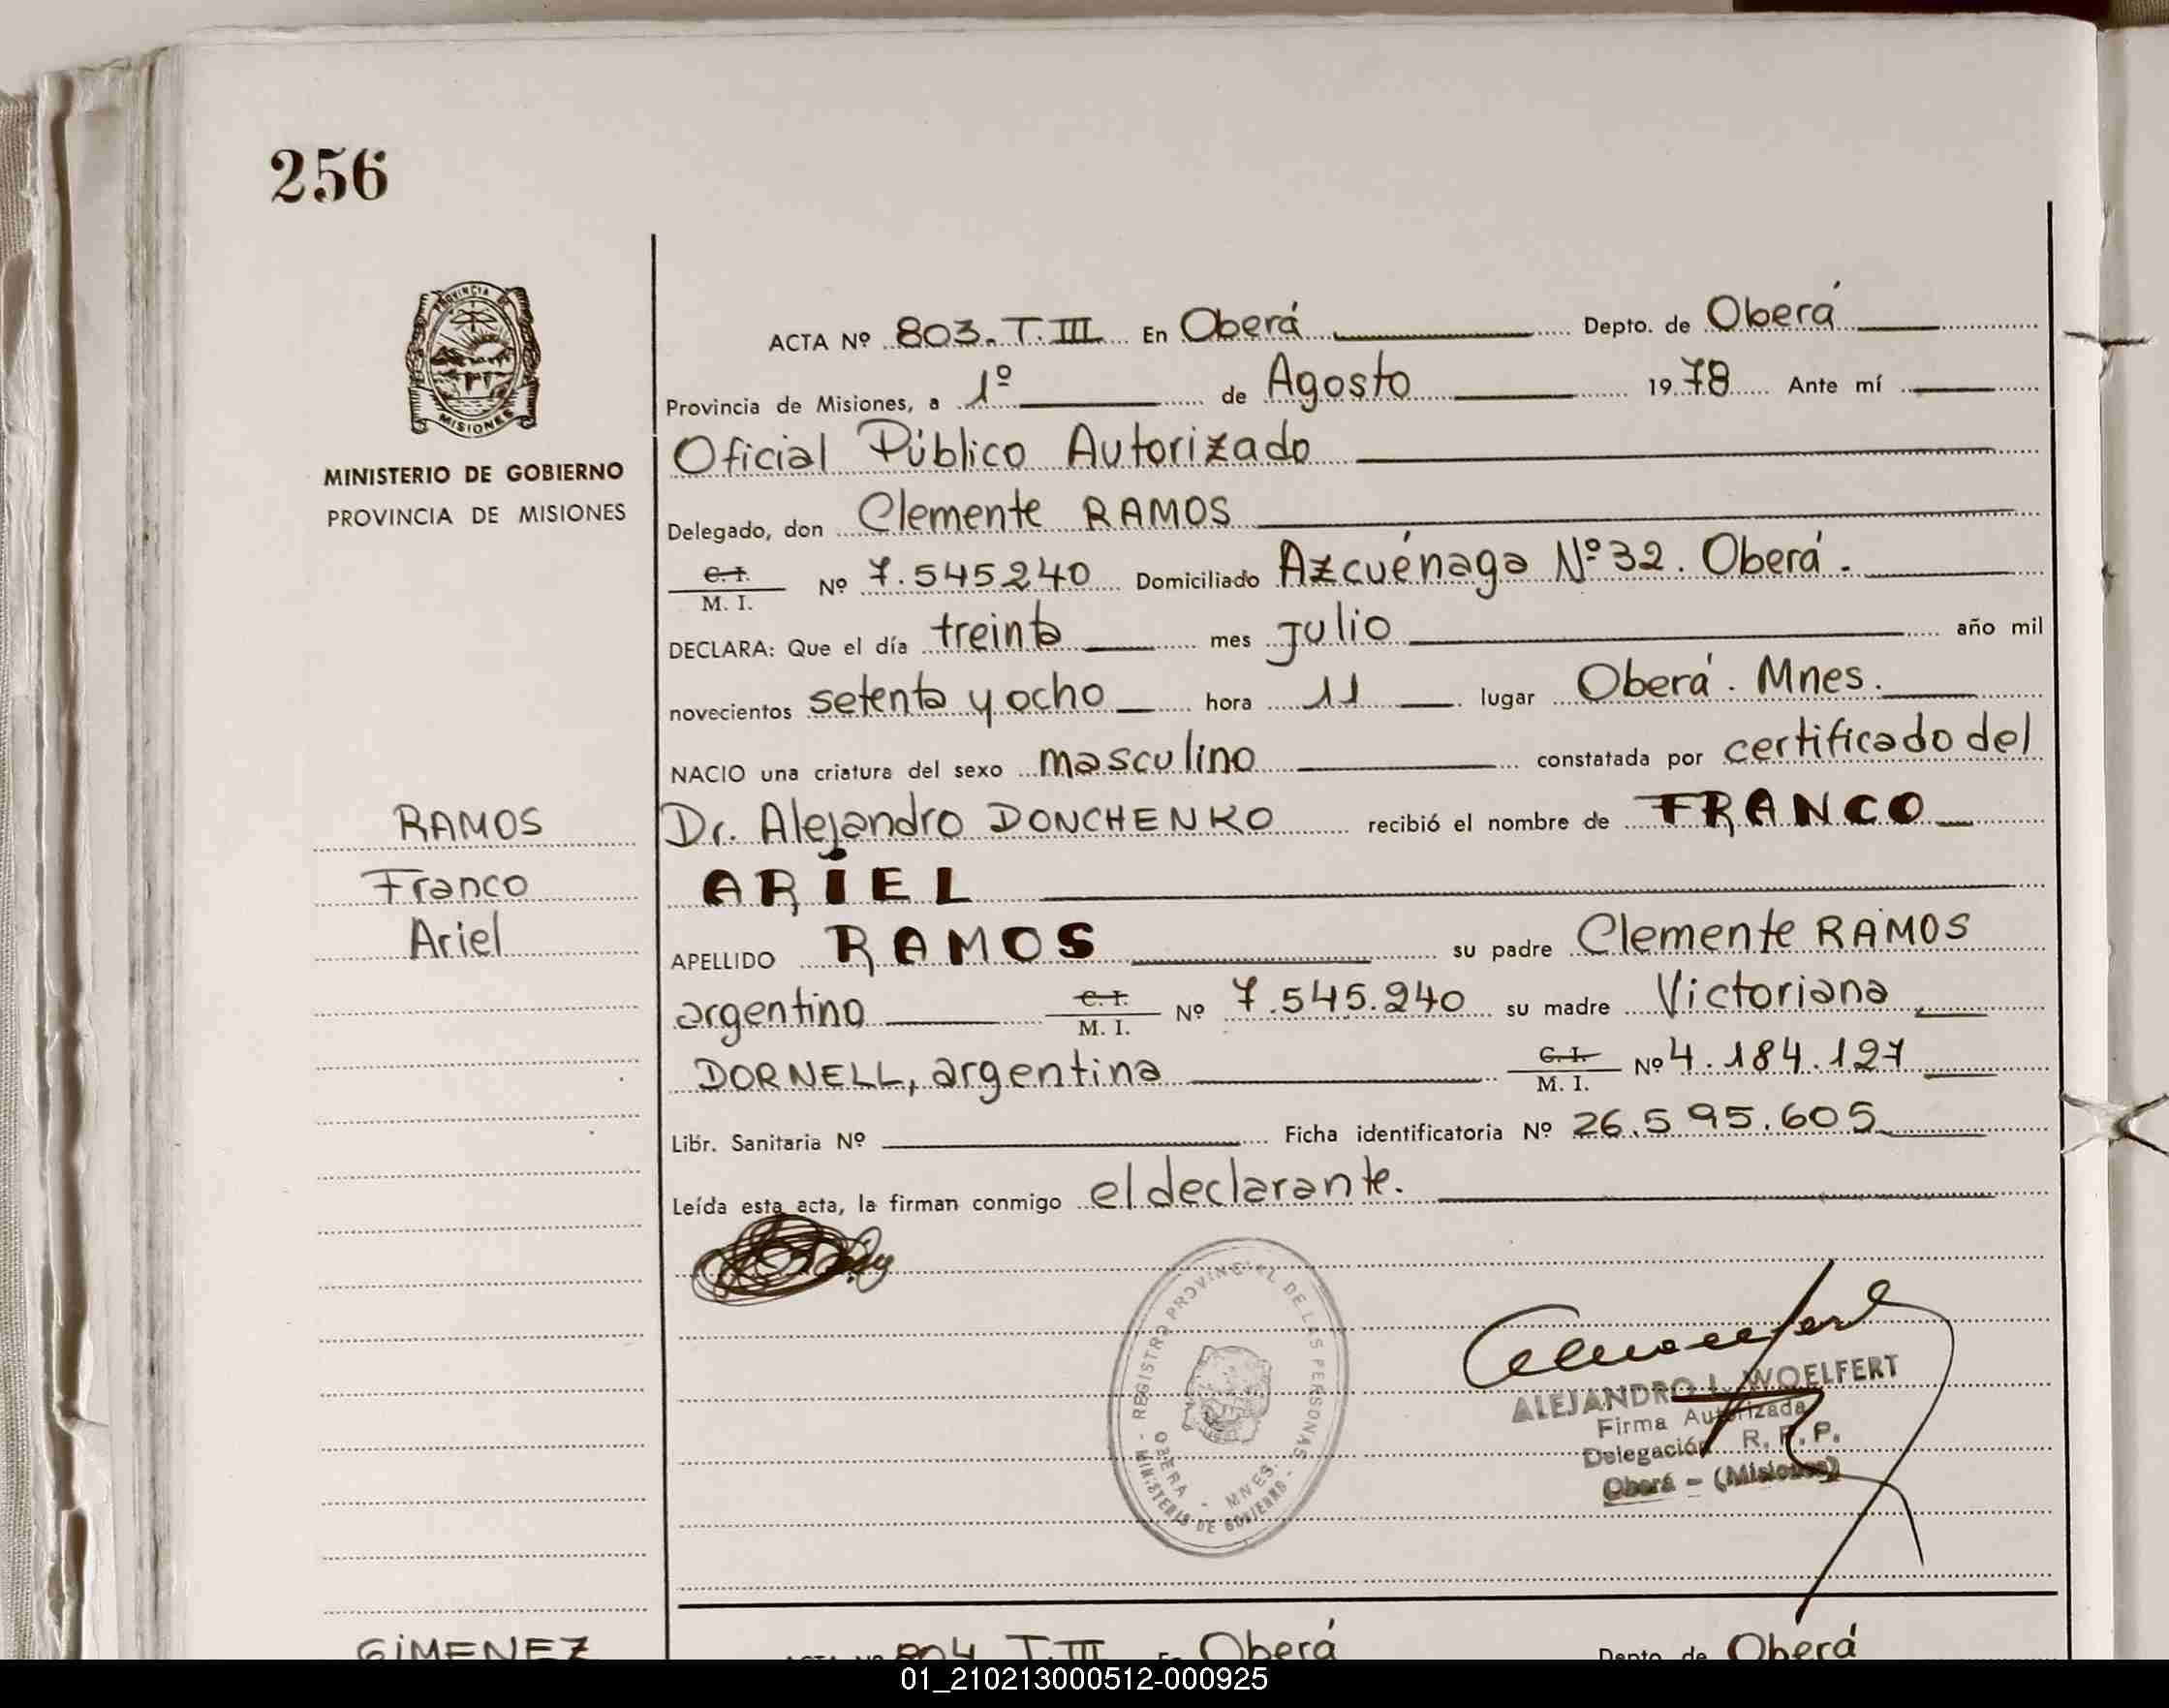 256
PROVINCIA DE
MISIONES
MINISTERIO DE GOBIERNO
PROVINCIA DE MISIONES
ACTA Nº 803. T. III En Oberá Depto. de Oberá
Provincia de Misiones, a 1º de Agosto 1978 Ante mí
Oficial Público Autorizado
Delegado, don Clemente RAMOS
C. I.
M. I. Nº 7.545240 Domiciliado Azcuénaga Nº 32. Oberá.
DECLARA: Que el día treinta mes julio año mil
novecientos setenta y ocho hora 11 lugar Oberá. Mnes.
NACIO una criatura del sexo masculino constatada por certificado del
Dr. Alejandro DONCHENKO recibió el nombre de FRANCO
ARIEL
APELLIDO RAMOS su padre Clemente RAMOS
argentino C. I. M. I. Nº 7.545.240 su madre Victoriana
DORNELL, argentina C. I. M. I. Nº 4.184.127
Libr. Sanitaria Nº Ficha identificatoria Nº 26.595.605
Leída esta acta, la firman conmigo el declarante.
RAMOS
Franco
Ariel
REGISTRO PROVINCIAL DE LAS PERSONAS
OBERA - MNES.
- MINISTERIO DE GOBIERNO -
ALEJANDRO L. WOELFERT
Firma Autorizada
Delegación R. P. P.
Oberá - (Misiones)
GIMENEZ
ACTA Nº 804 T. III En Oberá Depto. de Oberá
01_210213000512-000925